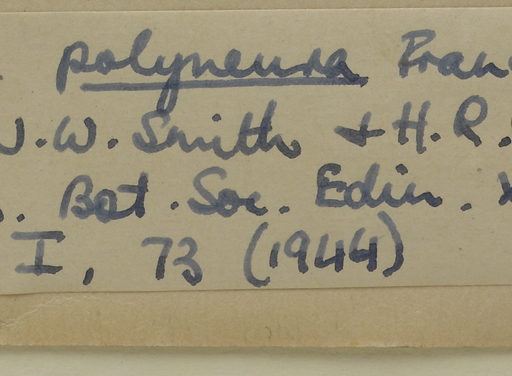 polyneura Fran
W.W. Smith & H.R.
. Bot. Soc. Edin.
I, 73 (1944)